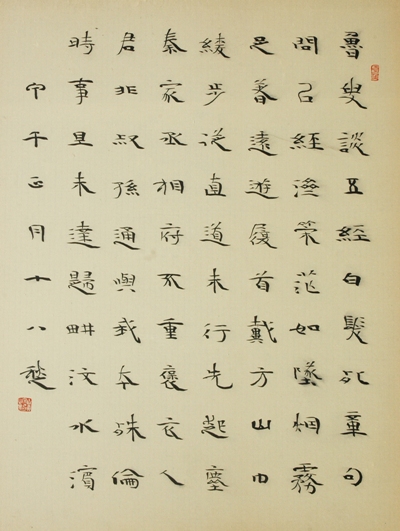 魯叟談五經白髮死章句
問㠯經濟策茫如墜烟霧
足著遠遊履首戴方山巾
緩步從直道未行先起塵
秦家丞相府不重褒衣人
君非叔孫通與我本殊倫
時事且未達歸耕汶水濱
甲午正月十八